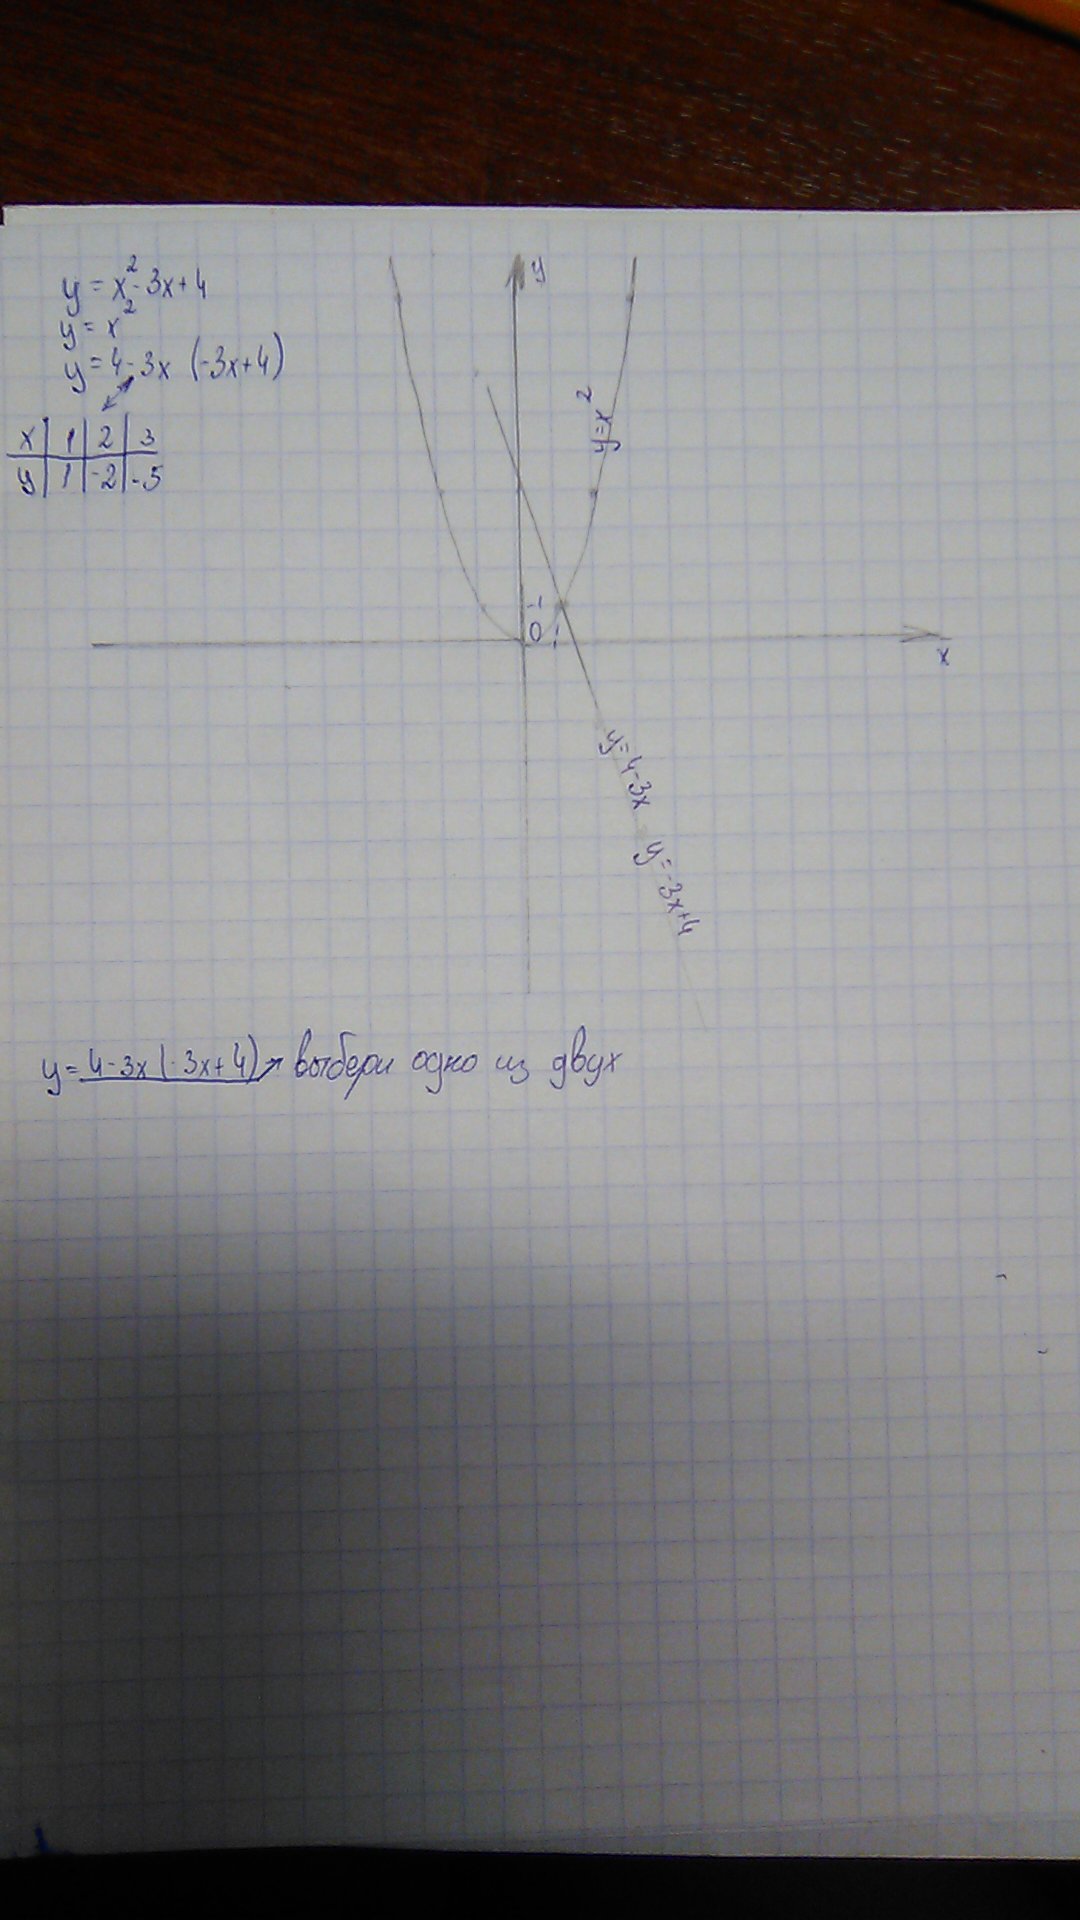 y = x² - 3x + 4
y = x²
y = 4 - 3x (-3x + 4)
x | 1 | 2 | 3
y | 1 | -2 | -5
y
y = x²
1
0 1
x
y = 4 - 3x
y = -3x + 4
y = 4 - 3x (-3x + 4) → выбери одно из двух